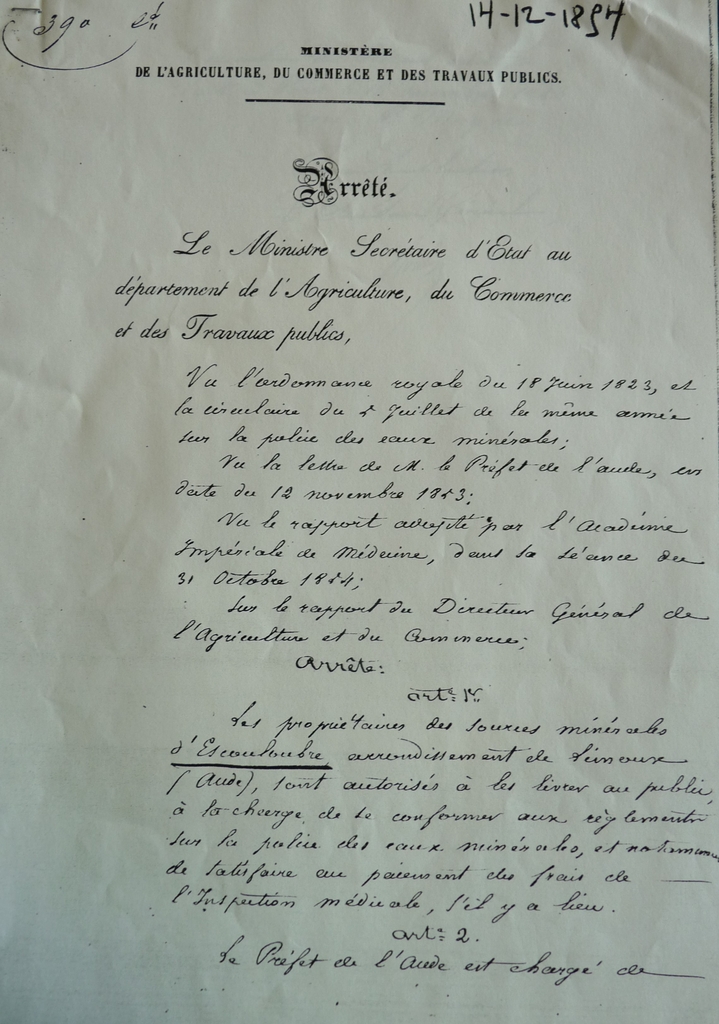 390
14-12-1854
MINISTÈRE
DE L'AGRICULTURE, DU COMMERCE ET DES TRAVAUX PUBLICS.
Arrêté.
Le Ministre Secrétaire d'Etat au
département de l'Agriculture, du Commerce
et des Travaux publics,
Vu l'ordonnance royale du 18 Juin 1823, et
la circulaire du 5 Juillet de la même année
sur la police des eaux minérales;
Vu la lettre de M. le Préfet de l'aude, en
date du 12 novembre 1853;
Vu le rapport adopté par l'Académie
Impériale de Médecine, dans sa séance du
31 Octobre 1854;
Sur le rapport du Directeur Général de
l'Agriculture et du Commerce;
Arrête:
art.e 1er
Les propriétaires des sources minérales
d'Escouloubre arrondissement de Limoux
(Aude), sont autorisés à les livrer au public,
à la charge de se conformer aux règlements
sur la police des eaux minérales, et notamment
de satisfaire au paiement des frais de
l'Inspection médicale, s'il y a lieu.
art.e 2.
Le Préfet de l'Aude est chargé de